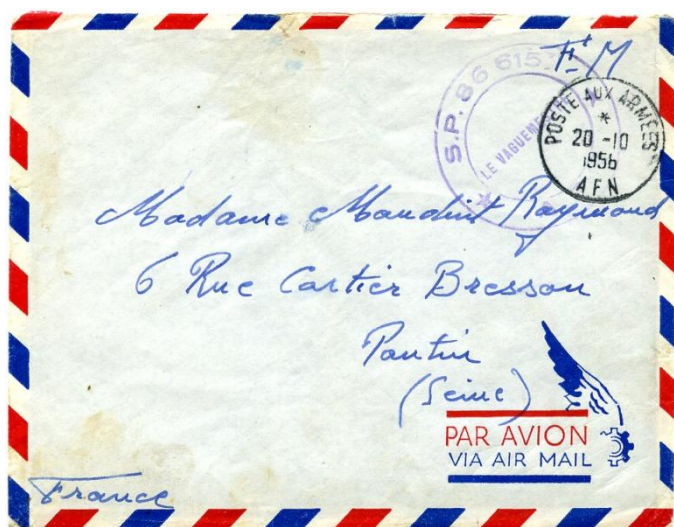 F M
S.P. 86 615
LE VAGUEMESTRE
POSTE AUX ARMEES
*
20 -10
1956
AFN
Madame Maudint Raymond
6 Rue Cartier Bresson
Pantin
(Seine)
PAR AVION
VIA AIR MAIL
France